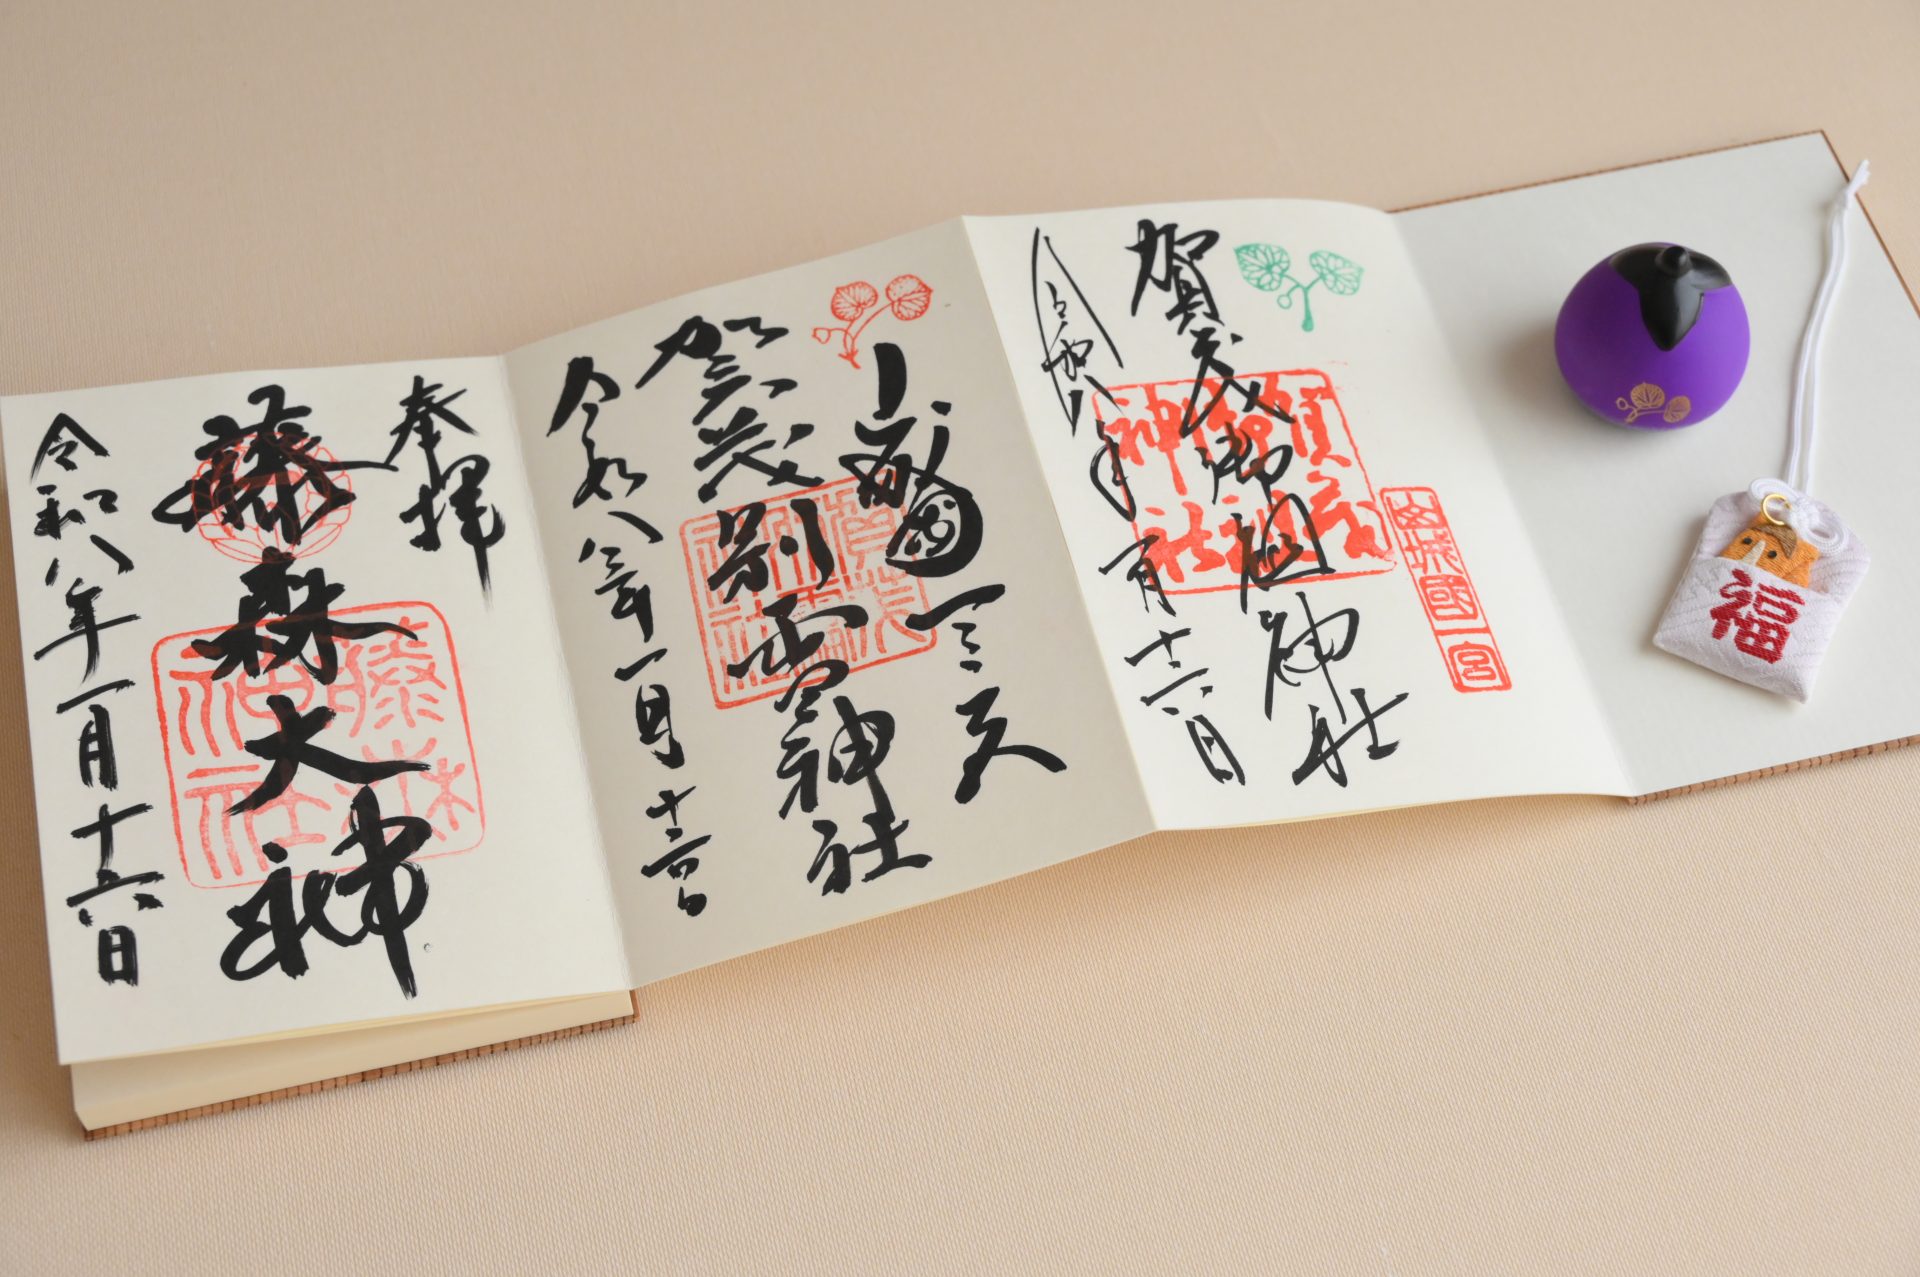 賀茂御祖神社
令和八年一月十六日
賀茂御祖神社
山城國一宮
山城國一之宮
賀茂別雷神社
令和八年一月十六日
賀茂別雷神社
奉拝
藤森大神
藤森神社
令和八年一月十六日
福